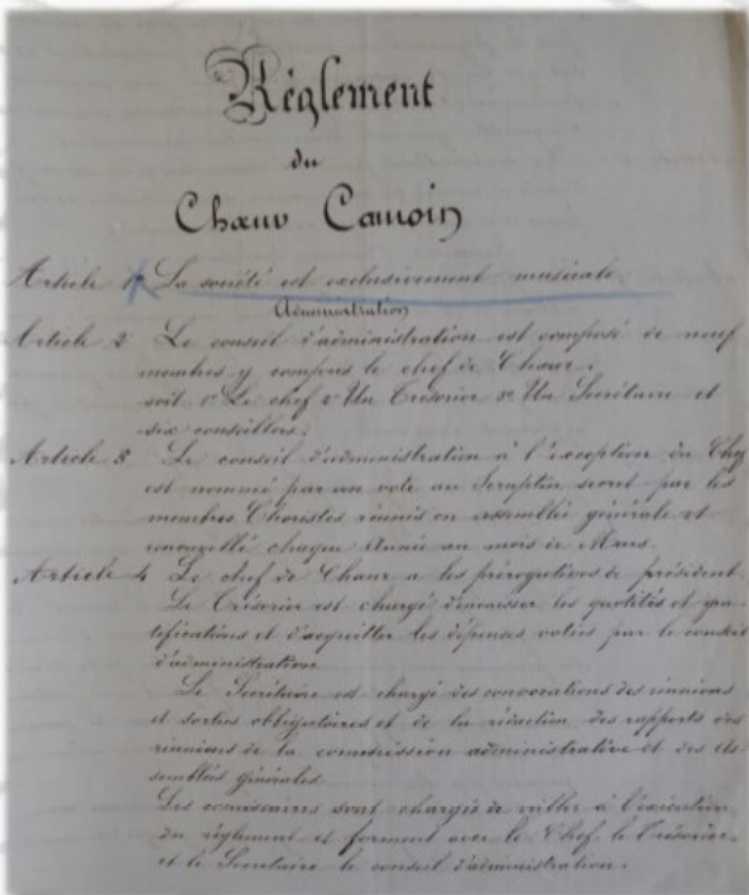 Règlement
du
Chœur Camoin
Article 1er La société est exclusivement musicale.
Administration
Article 2 Le conseil d'administration est composé de neuf
membres y compris le chef de Chœur.
soit 1° Le chef 2° Un Trésorier 3° Un Secrétaire et
six conseillers.
Article 3 Le conseil d'administration à l'exception du Chef
est nommé par un vote au Scruptin secret par les
membres Choristes réunis en assemblée générale et
renouvellé chaque Année au mois de Mars.
Article 4 Le chef de Chœur a les prérogatives de président.
Le Trésorier est chargé d'encaisser les quotités et gra-
tifications et d'acquitter les dépenses votées par le conseil
d'administration
Le Secrétaire est chargé des convocations des réunions
et sorties obligatoires et de la rédaction des rapports des
réunions de la commission administrative et des As-
semblées générales.
Les commissaires sont chargés de veiller à l'exécution
du règlement et forment avec le Chef, le Trésorier
et le Secrétaire le conseil d'administration.